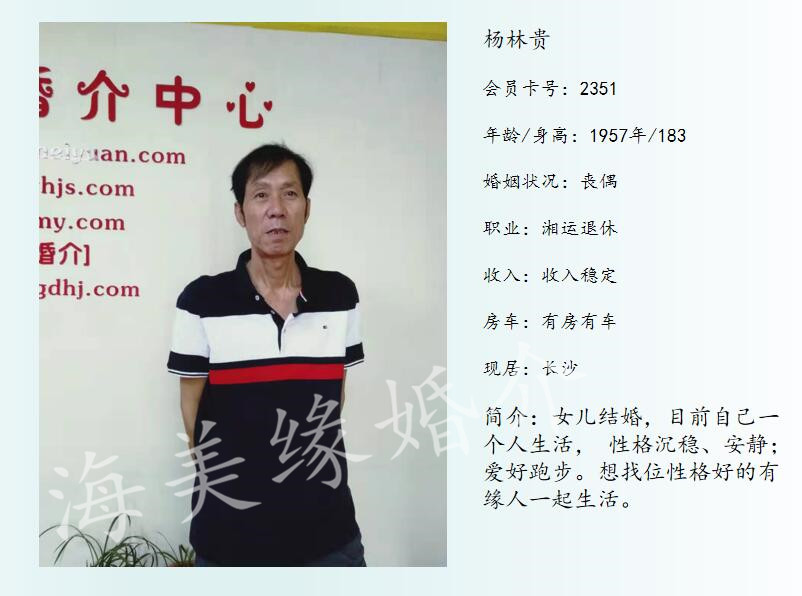 婚介中心
meiyuan.com
hjs.com
my.com
婚介]
gdhj.com
海美缘婚介
杨林贵
会员卡号：2351
年龄/身高：1957年/183
婚姻状况：丧偶
职业：湘运退休
收入：收入稳定
房车：有房有车
现居：长沙
简介：女儿结婚，目前自己一
个人生活， 性格沉稳、安静；
爱好跑步。想找位性格好的有
缘人一起生活。